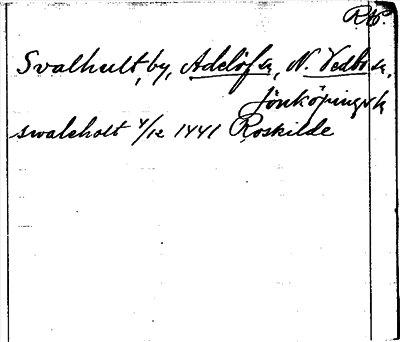 Svalhult, by, Adelöf sn, N. Vedbo hd,
Jönköpings l.
swalcholt 4/12 1441 Roskilde